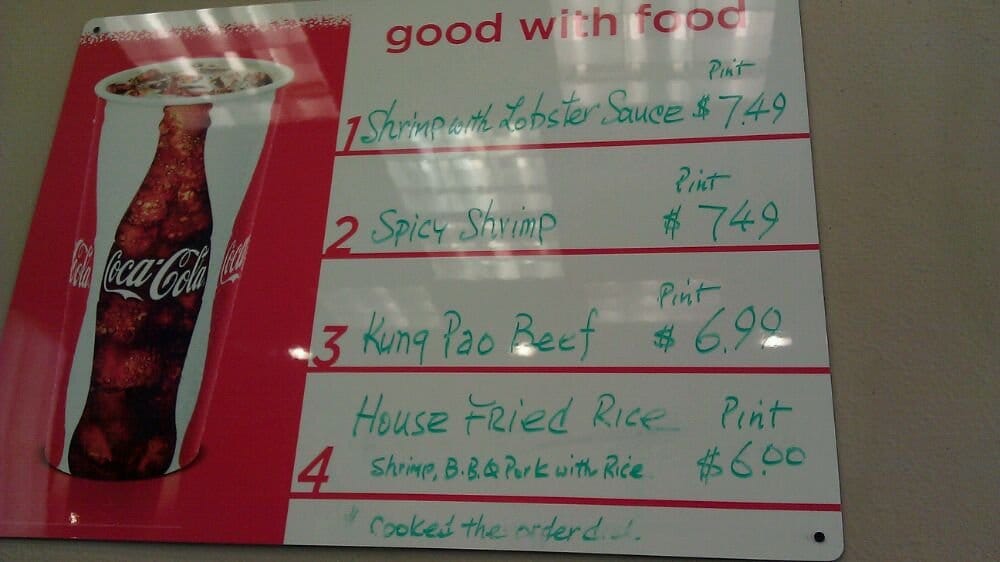 good with food
Pint
1 Shrimp with Lobster Sauce $ 7.49
Pint
2 Spicy Shrimp $ 749
Pint
3 Kung Pao Beef $ 6.99
House Fried Rice Pint
4 Shrimp, B.B.Q Pork with Rice $6.00
cooked the order
Coca-Cola
Cola
Coca